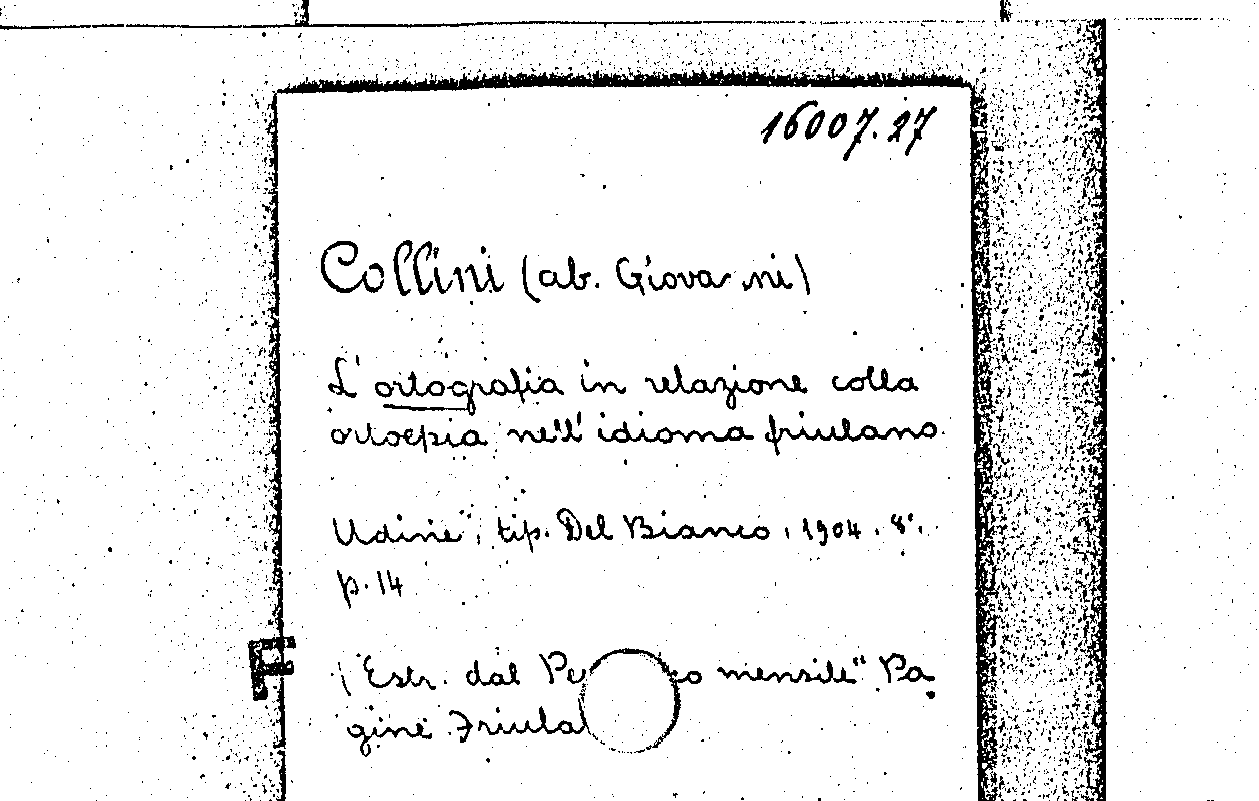 16007.27
Collini (ab. Giovanni)
L'ortografia in relazione colla
ortoepia nell'idioma friulano
Udine, tip. Del Bianco, 1904. 8°.
p. 14
F
(Estr. dal mensile "Pa
gine